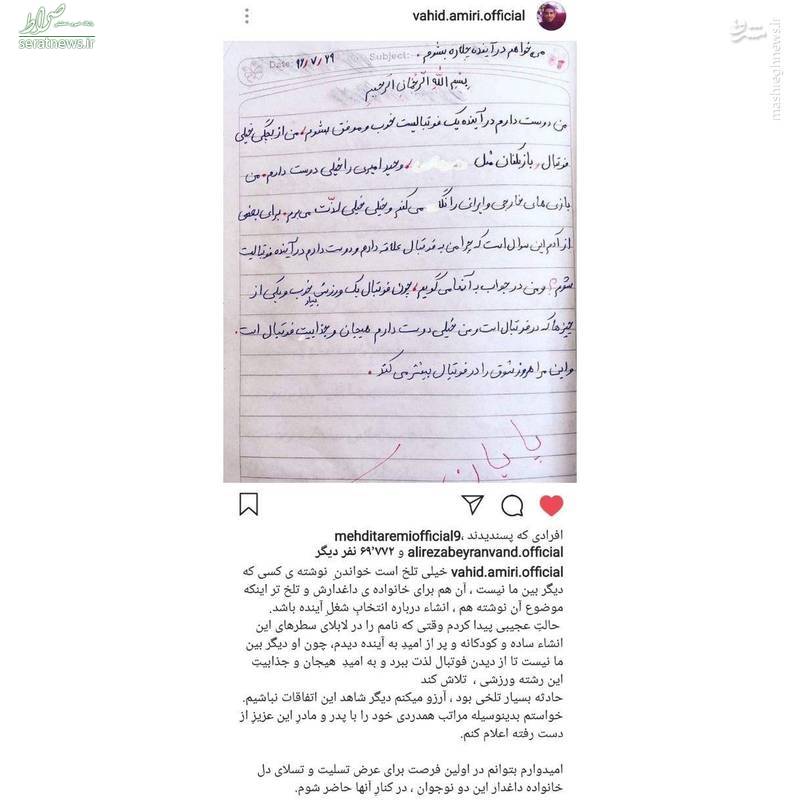 صراط
پایگاه خبری تحلیلی
seratnews.ir
مشرق
mashreghnews.ir
vahid.amiri.official
می خواهم در آینده چکاره بشوم.
Date: ۹۶/۷/۲۹ Subject:
بسم الله الرحمن الرحیم
من دوست دارم در آینده یک فوتبالیست خوب و موفق بشوم، من از بچگی خیلی
فوتبال، بازیکنان مثل وحید امیری را خیلی دوست دارم. من
بازی های خارجی و ایرانی را نگاه می کنم و خیلی خیلی لذت می برم. برای بعضی
از آدم این سوال است که چرا من به فوتبال علاقه دارم و دوست دارم در آینده فوتبالیست
شوم؟ و من در جواب به آنها می گویم، چون فوتبال یک ورزش بسیار خوب و یکی از
چیزها که در فوتبال است و من خیلی دوست دارم هیجان و جذابیت فوتبال است.
و این مرا هر روز شوق را در فوتبال بیشتر می کند.
پایان
افرادی که پسندیدند mehditaremiofficial9،
alirezabeyranvand.official و ۶۹٬۷۷۲ نفر دیگر
vahid.amiri.official خیلی تلخ است خواندنِ نوشته ی کسی که
دیگر بین ما نیست ، آن هم برای خانواده ی داغدارش و تلخ تر اینکه
موضوع آن نوشته هم ، انشاء درباره انتخابِ شغلِ آینده باشد.
حالتِ عجیبی پیدا کردم وقتی که نامم را در لابلای سطرهای این
انشاء ساده و کودکانه و پر از امیدِ به آینده دیدم، چون او دیگر بین
ما نیست تا از دیدن فوتبال لذت ببرد و به امیدِ هیجان و جذابیتِ
این رشته ورزشی ، تلاش کند
حادثه بسیار تلخی بود ، آرزو میکنم دیگر شاهد این اتفاقات نباشیم.
خواستم بدینوسیله مراتب همدردی خود را با پدر و مادرِ این عزیزِ از
دست رفته اعلام کنم.
امیدوارم بتوانم در اولین فرصت برای عرض تسلیت و تسلای دل
خانواده داغدار این دو نوجوان ، در کنارِ آنها حاضر شوم.